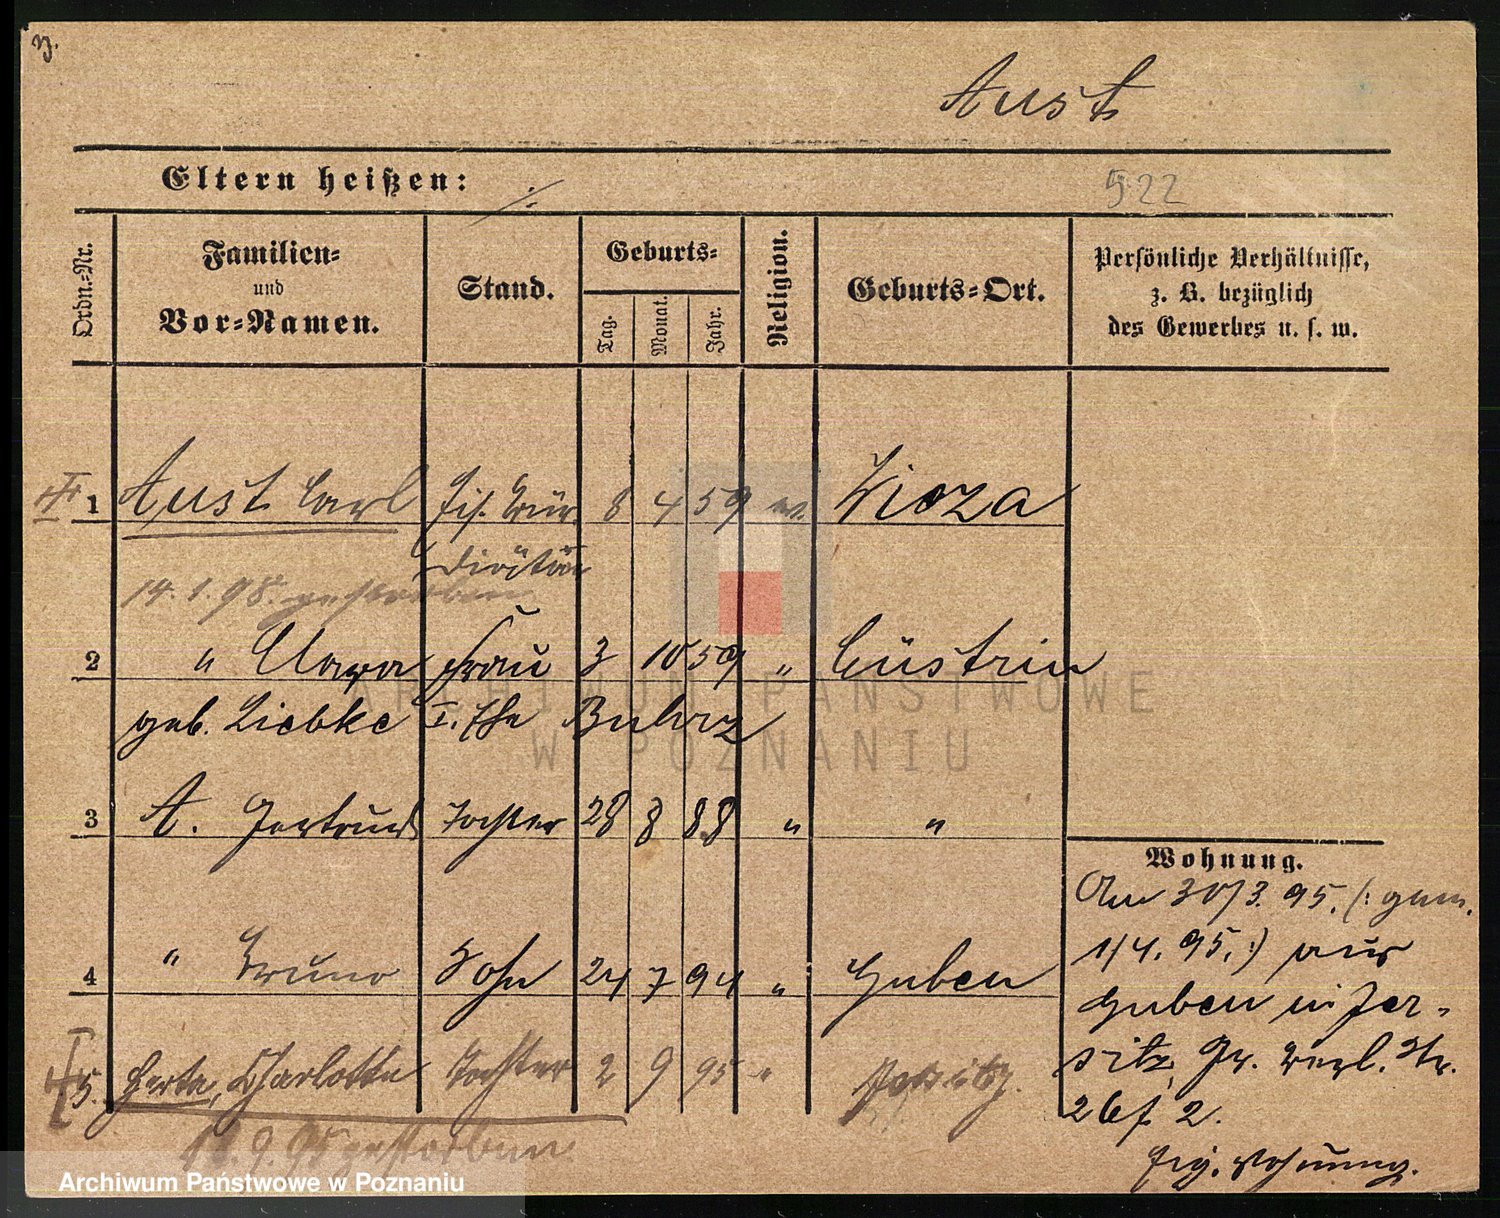 Aust
Eltern heißen: ./.
522
Ordn.=Nr.
Familien=
und
Vor=Namen.
Stand.
Geburts=
Tag.
Monat.
Jahr.
Religion.
Geburts=Ort.
Persönliche Verhältnisse,
z. B. bezüglich
des Gewerbes u. s. w.
1 Aust Carl Eis. Bür. 8 4 59 ev.
14. 1. 98. gestorben
2 " Clara Frau 3 10 59 " Cüstrin
geb. Liebke I. Ehe
3 A. Gertrud Tochter 28 8 88 " "
4 " Bruno Sohn 24 7 94 " Guben
5. Herta, Charlotte Tochter 2 9 95 " Jersitz.
9. 95 gestorben
Wohnung.
Am 30/3. 95. (: gem.
1/4. 95. :) aus
Guben in Jer-
sitz, Gr. Berl. Str.
2.
Eig. Wohnung.
ARCHIWUM PAŃSTWOWE
W POZNANIU
Archiwum Państwowe w Poznaniu